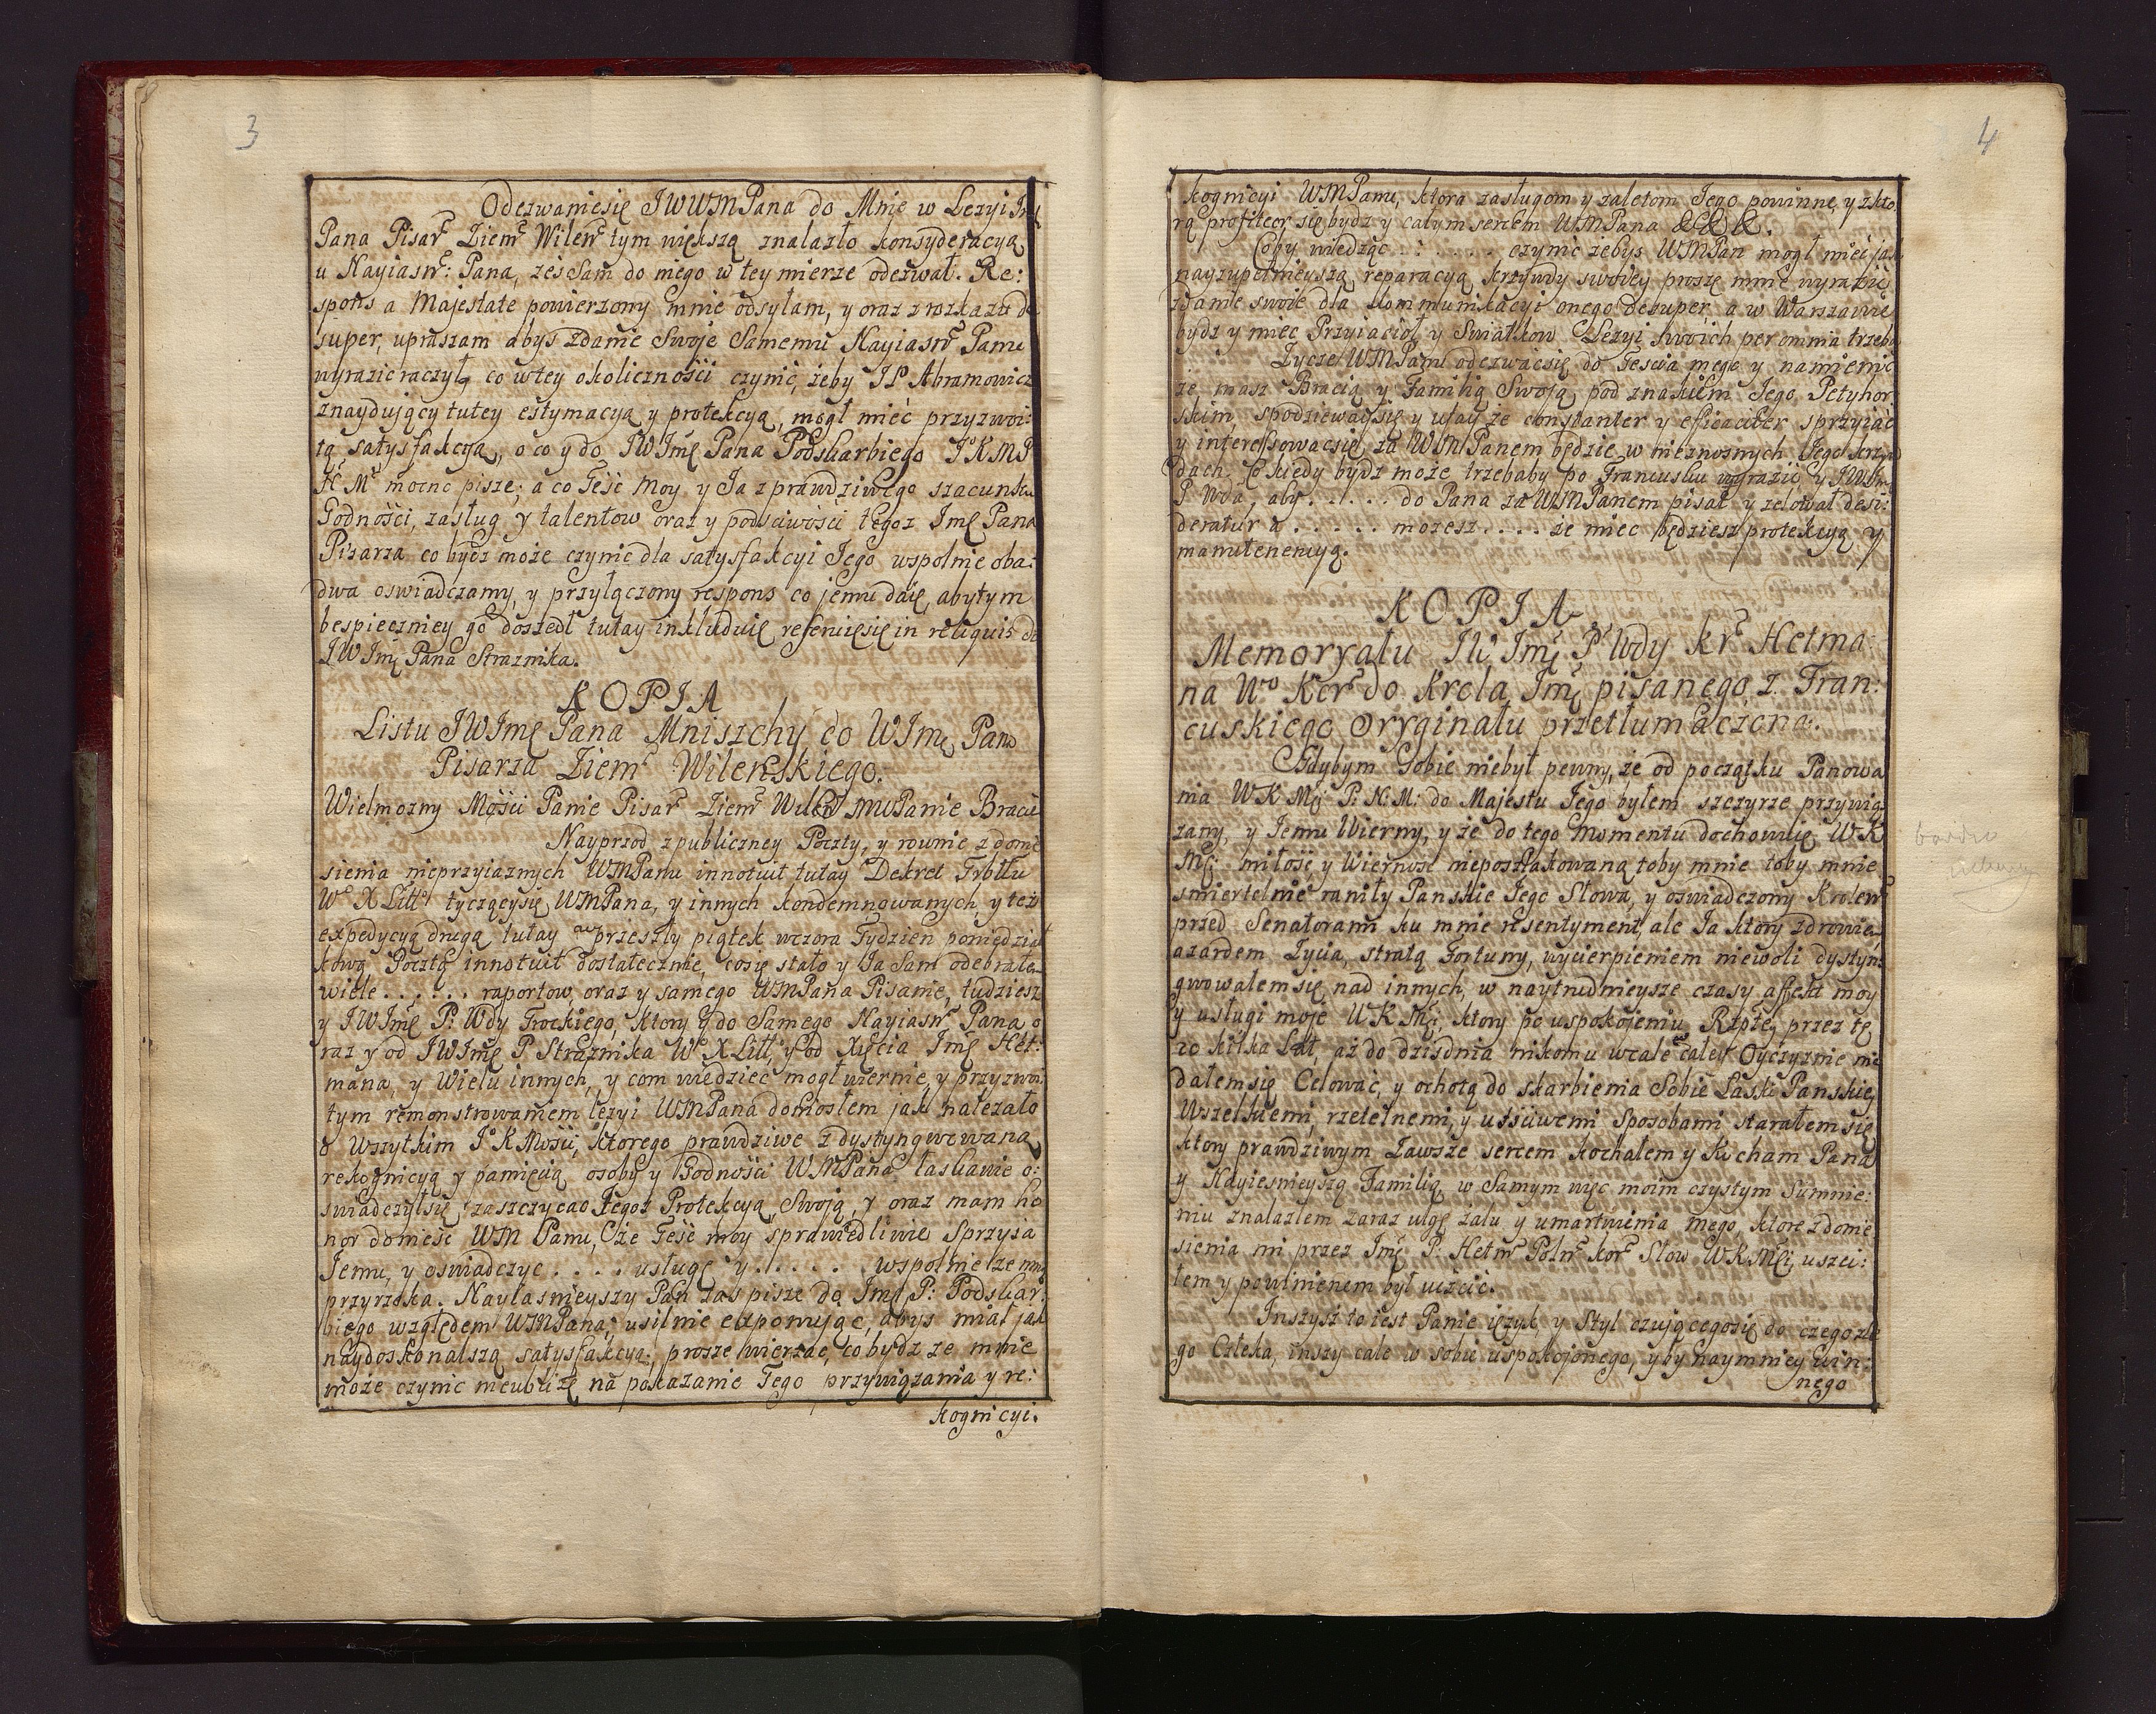 3
Odezwaniesię JWWMPana do Mnie w Lezyi Im
Pana Pisar Ziem Wilen tym większą znalazło konsyderacyą
u Nayiasn: Pana, żeś Sam do niego w tey mierze odezwał. Re:
spons a Majestate powierzony mnie odsyłam, y oraz z rozkazu de
super, upraszam abyś Zdanie Swoje Samemu Nayiasn Panu
wyrazic raczył, co w tey okoliczności czynić, żeby JP Abramowicz
znaydujący tutey estymacyą y protekcyą, mogł mieć przyzwoi:
tą satysfakcyą, o co y do JWImę Pana Podskarbiego JKMP
N M mocno pisze; a co Teść Moy y Ja z prawdziwego szacunku
Godności, zasług y talentow oraz y podsciwości tegoz Imę Pana
Pisarza co bydz może czynic dla satysfakcyi Jego wspolnie oba:
dwa oswiadczamy, y przyłączony respons co jemu daię, abytym
bespieczniey go doszedł tutay inkluduię referuięsię in reliquis do
JWImę Pana Straznika.
KOPIA
Listu JWImę Pana Mniszchy do WImę Pana
Pisarza Ziem Wilenskiego.
Wielmozny Mości Panie Pisar Ziem Wilen MWPanie Bracie
Nayprzod z publiczney Poczty, y rownie z donie
sienia nieprzyiaznych WMPanu innotuit tutay Dekret Trbłłu
W X Litt tyczącysię WMPana, y innych kondemnowanych, y też
expedycyą drugą tutay w przeszły piątek wczora Tydzien poniedział
kową Pocztą innotuit dostatecznie, cosię stało y Ja Sam odebrałem
wiele . . . . . . raportow, oraz y samego WMPana Pisanie, tudziesz
y JWImę P: Wdy Trockiego, ktory y do Samego Nayiasn Pana o
raz y od JWImę P Straznika W X Litt, y od Xięcia Imę Het:
mana, y Wielu innych, y com wiedziec mogł wiernie, y przyzwoi
tym remonstrowaniem lezyi WMPana doniosłem jak należało
o Wszytkim J K Mosci, ktorego prawdziwe z dystyngwowaną
rekognicyą y pamięcią osoby y Godności WMPana łaskawie o:
swiadczyłsię zaszczycac Tegoz Protekcyą Swoją, y oraz mam ho
nor doniesc WM Panu, Że Teść moy sprawiedliwie Sprzyia
Jemu, y oswiadczyc . . . . usługę y . . . . . wspolnie ze mną
przyrzeka. Nayiasnieyszy Pan zas pisze do Imę P: Podskar:
biego względem WMPana, usilnie exponując, abys miał jak
naydoskonalszą satysfakcyą; proszę wierzac, co bydz ze mnie
może czynic nieubliżę na pokazanie Tego przywiązania y re:
kognicyi.
4
kognicyi WMPanu, ktora zasługom y zaletom Jego powinne, y z kto
rą profiteor się bydz y całym sercem WMPana &&&.
Coby wiedząc . . . . . . czynic żebys WMPan mogł mieć jak
nayzupełnieyszą reparacyą krzywdy swoiey proszę mnie wyrazić
zdanie swoie dla kommunikacyi onego desuper, a w Warszawie
bydz y miec Przyiacioł y Swiatkow Lezyi swoich per omnia trzeba
Zyczę WMPanu odezwacsię do Tescia mego y namienić
ze masz Bracią y Familią Swoją pod znakiem Jego Petyhor
skim, spodziewaćsię y ufay że constanter y efficaciter sprzyiać
y interessowacsię za WMPanem będzie w nieznosnych Jego krzyw
dach. A kiedy bydz może trzebaby po Francusku wyrazić y JWIm
P Wda, aby . . . . . do Pana za WMPanem pisał y zelował desi:
deratur a . . . . . możesz . . . . że miec będziesz protekcyą y
manutenencyą.
KOPIA
Memoryału JW Imę P Wdy kr Hetma
na W Kor do Krola Imę pisanego z Fran:
cuskiego Oryginału przetłumaczona.
Gdybym Sobie niebył pewny, że od początku Panowa
nia WK Mći P: N: M: do Majestu Jego byłem szczyrze przywią
zany, y Jemu Wierny, y że do tego Momentu dochowuię WK
Mći miłość y Wiernosc nieposzlakowaną toby mnie toby mnie
smiertelnie raniły Panskie Jego Słowa, y oswiadczony Krolew
przed Senatorami ku mnie resentyment, ale Ja ktory zdrowie,
azardem Zycia, stratą Fortuny, wycierpieniem niewoli dystyn:
gwowałemsię nad innych, w naytrudnieysze czasy affekt moy
y usługi moje WK Mći, ktory po uspokojeniu Rzptej przez tę
to kilka Lat, aż do dzisdnia nikomu wcale całey Oyczyznie nie
dałemsię Celować, y ochotą do skarbienia Sobie Łaski Panskiej
Wszelkiemi, rzetelnemi, y ućściwemi Sposobami starałem się
ktory prawdziwym Zawsze sercem kochałem y Kocham Pana
y Nayiesnieyszą Familią, w Samym więc moim czystym Sumnie:
niu znalazłem zaraz ulgę żalu y umartwienia mego, ktore z donie
sienia mi przez Imę P: Hetm Poln kor Słow WK Mći, uszci:
łem y powinienem był uczcić.
Inszyśz to iest Panie ięzyk, y Styl czującegosię do czego złe
go Człeka, inszy cale w sobie uspokojonego, y by naymniey win:
nego